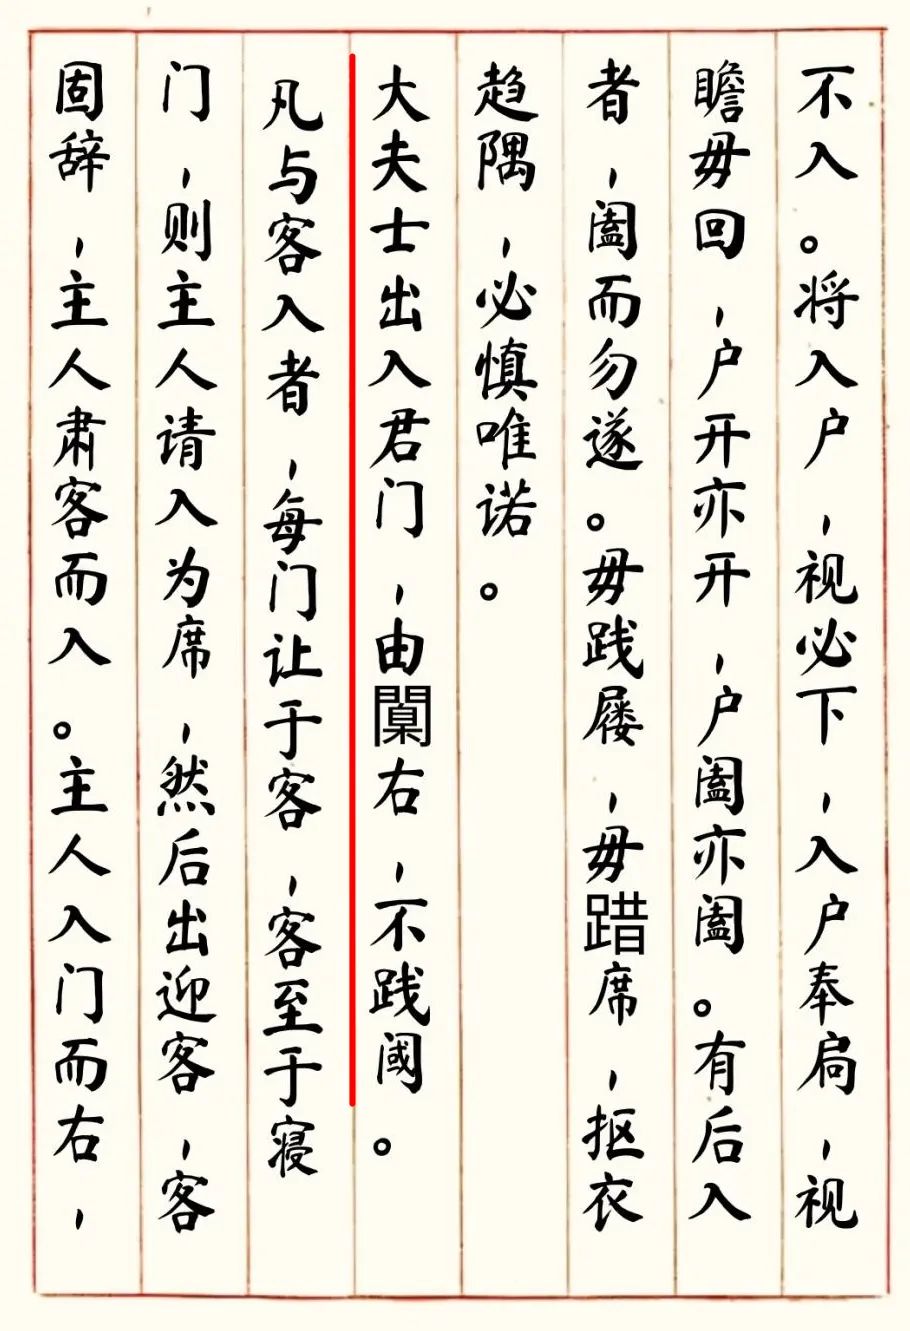 不入。将入户，视必下，入户奉扃，视
瞻毋回，户开亦开，户阖亦阖。有后入
者，阖而勿遂。毋践屦，毋踖席，抠衣
趋隅，必慎唯诺。
大夫士出入君门，由闑右，不践阈。
凡与客入者，每门让于客，客至于寝
门，则主人请入为席，然后出迎客，客
固辞，主人肃客而入。主人入门而右，